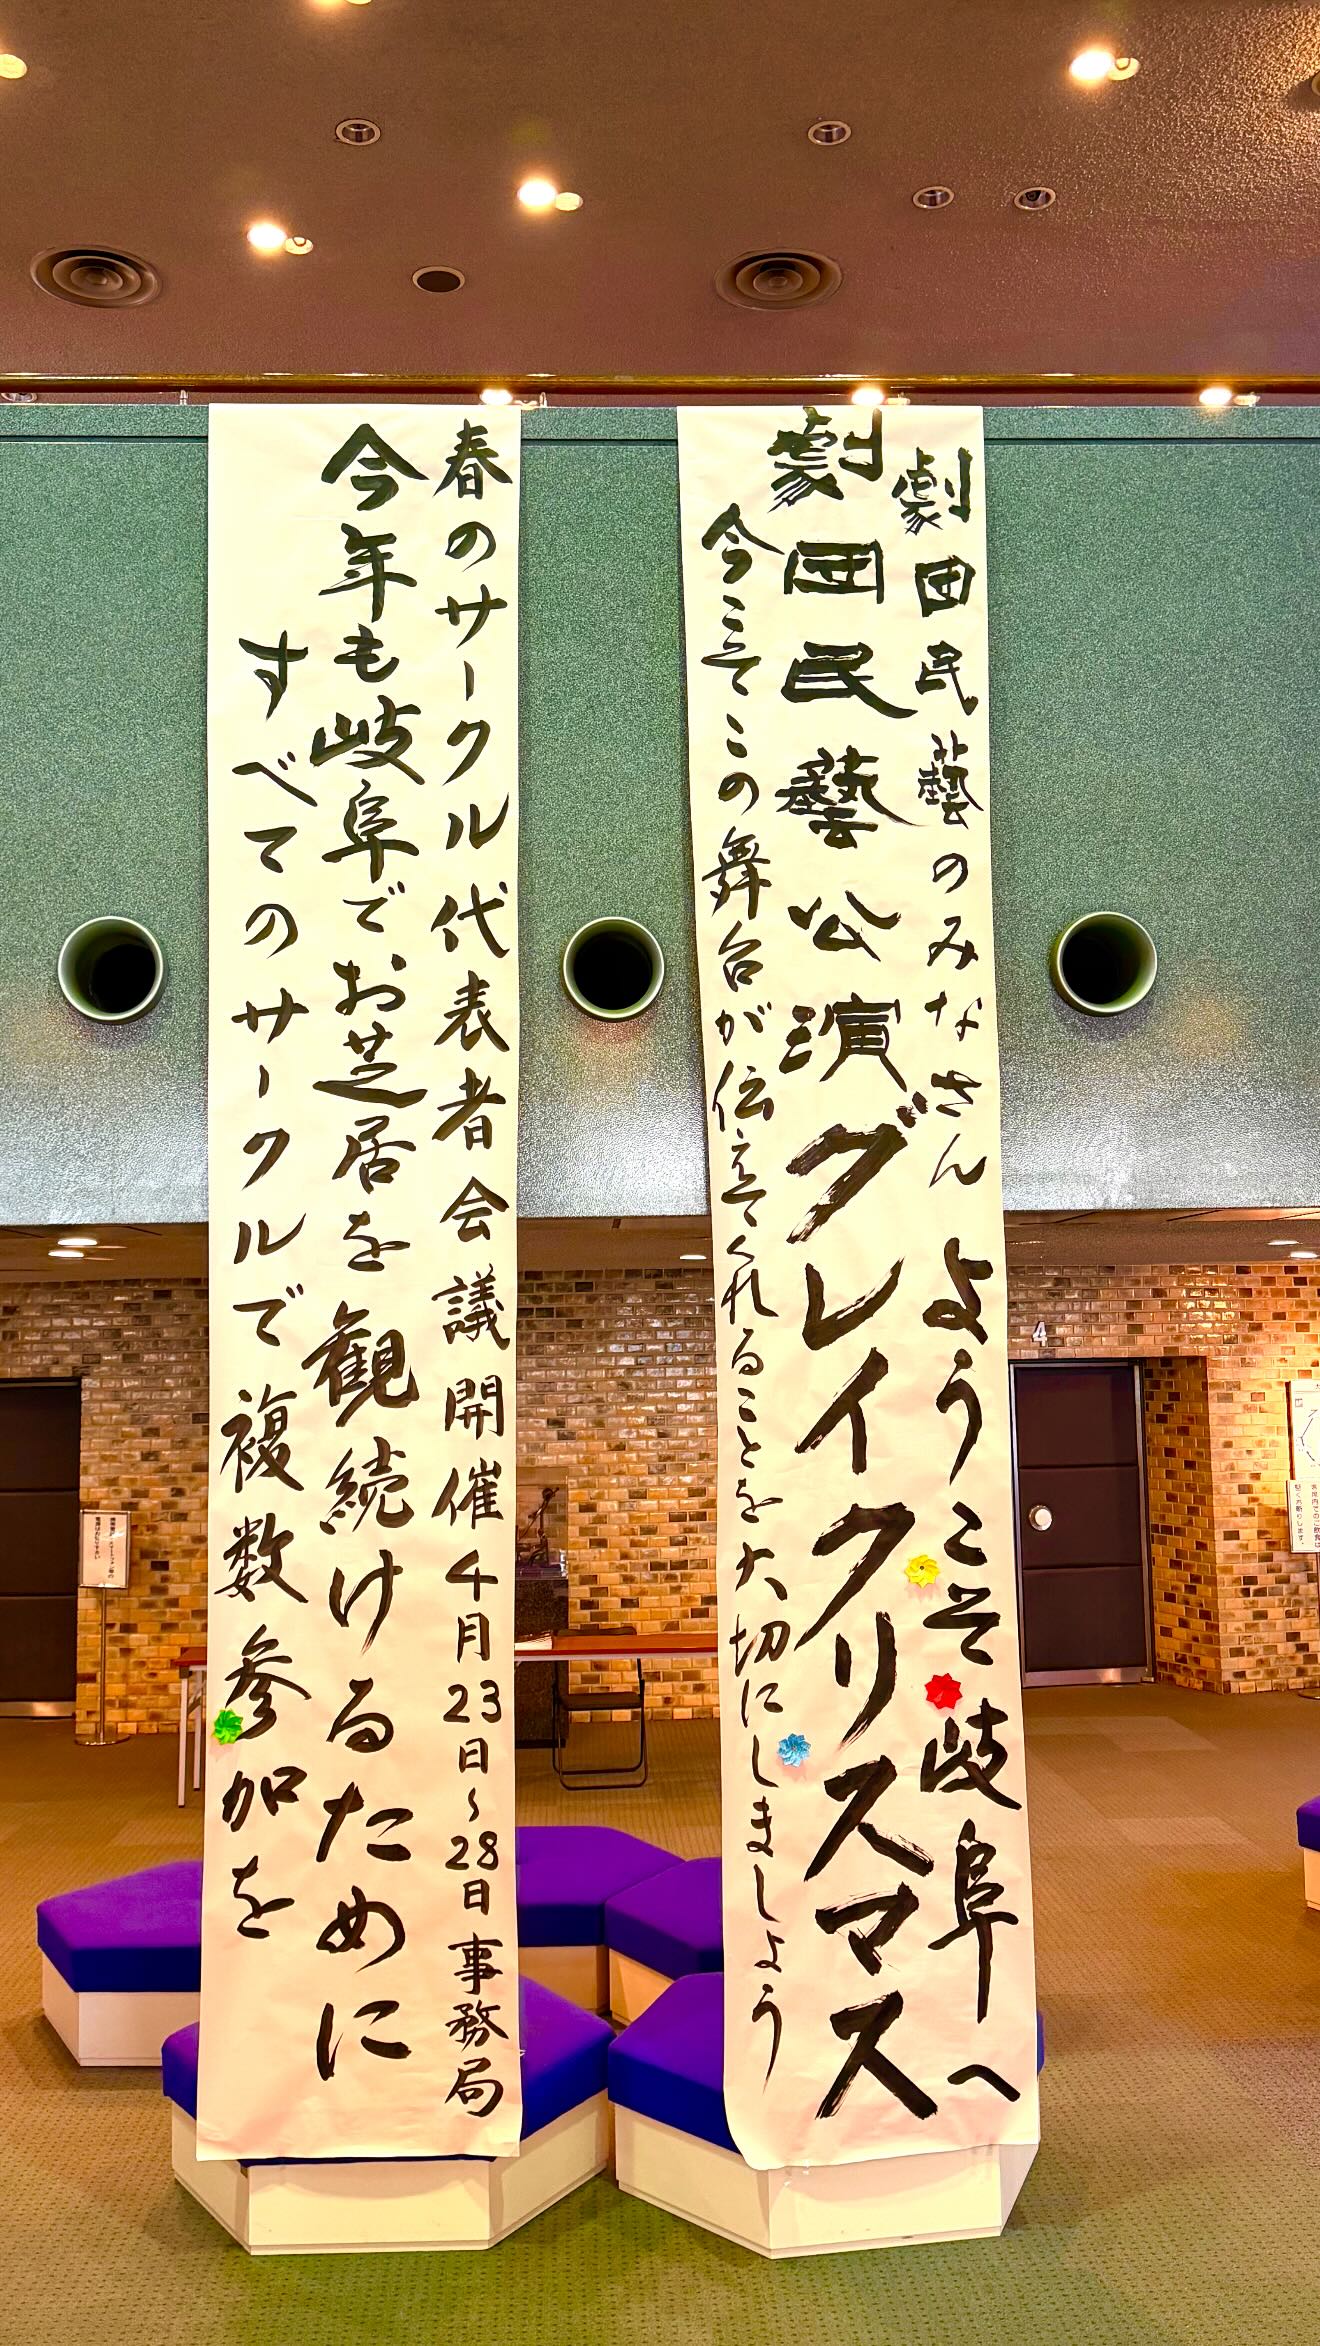 劇団民藝のみなさん ようこそ岐阜へ
劇団民藝公演グレイクリスマス
今こうしてこの舞台が伝えてくれることを大切にしましょう
春のサークル代表者会議開催4月23日~28日事務局
今年も岐阜でお芝居を観続けるために
すべてのサークルで複数参加を
4